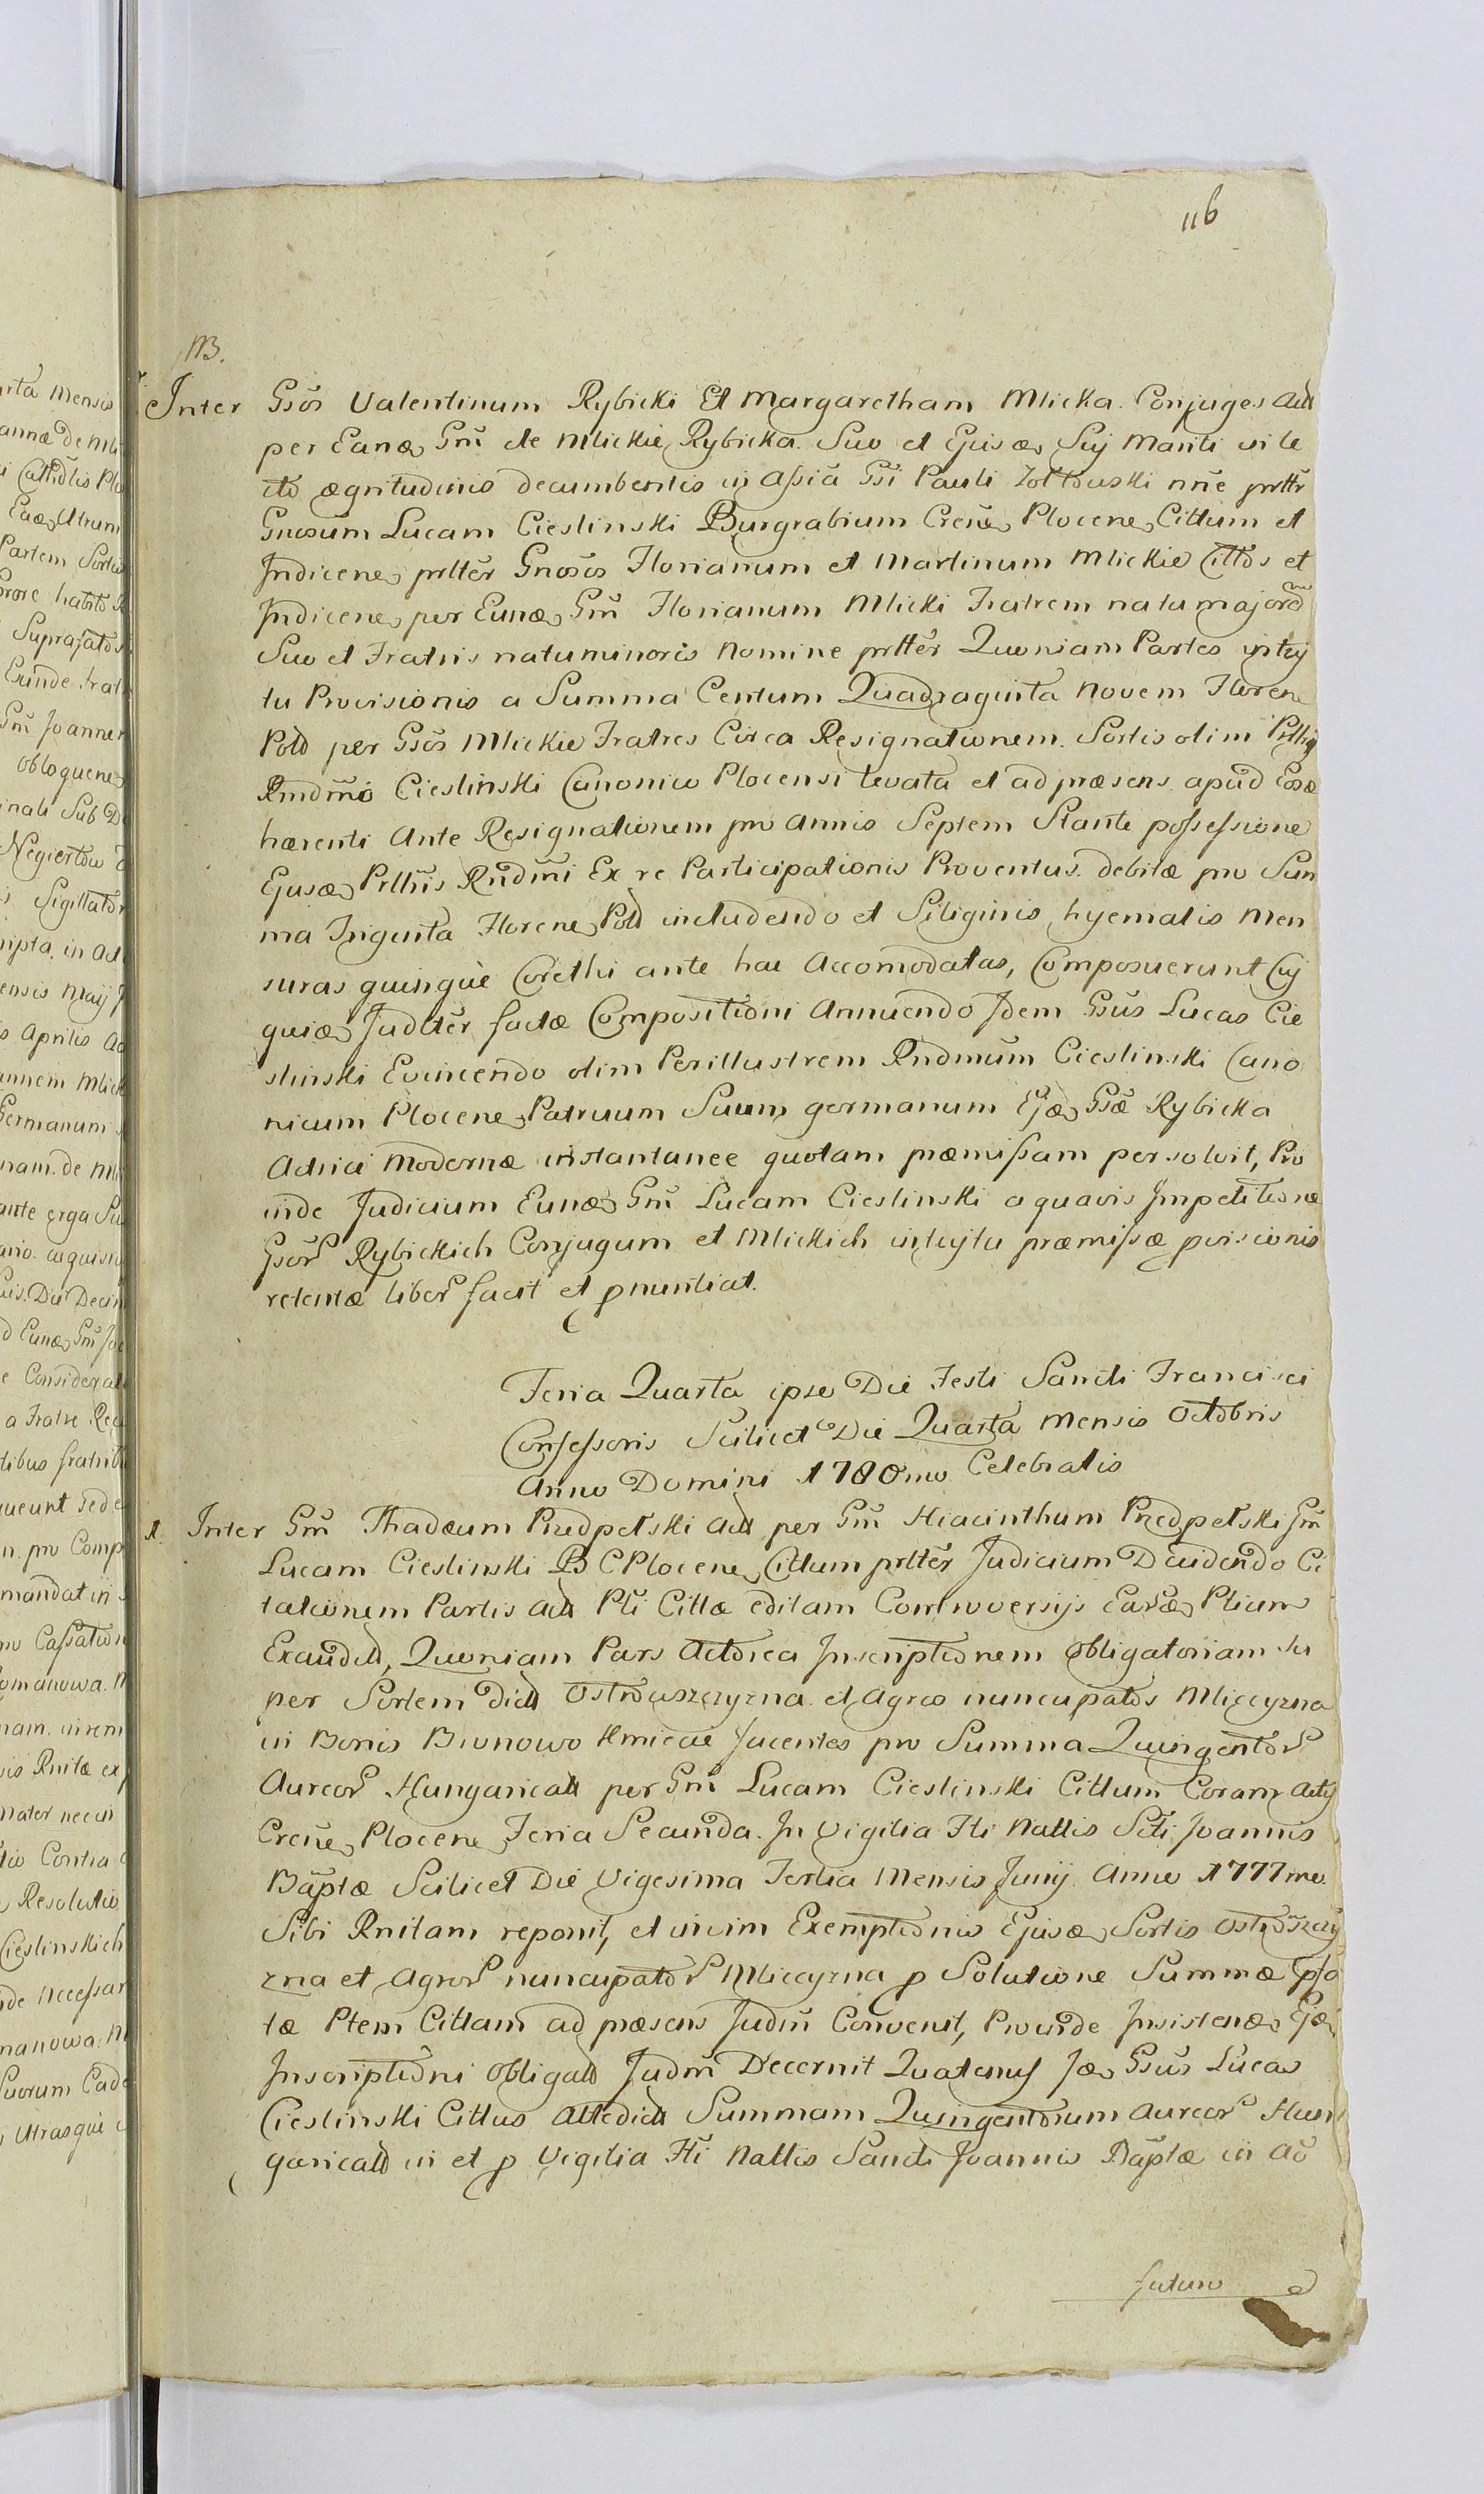 116
NB.
Inter Gsos Valentinum Rybicki Et Margaretham Mlicka Conjuges Act
per Eand Gm de Mlickie Rybicka Suo et Ejusd Suj Mariti vi le
cto ægritudinis decumbentis in assia Gsi Pauli Zołtowski nne prltr
Gnosum Lucam Cieslinski Burgrabium Crene Plocene Cittum et
Indicene prltēr Gnosos Florianum et Martinum Mlickie Cittos et
Indicene per Eund Gm̄ Florianum Mlicki Fratrem natu majorem
Suo et Fratris natu minoris Nomine prltēr Quoniam Partes intuj
tu Provisionis a Summa Centum Quadraginta Novem Floren
Pold per Gsos Mlickie Fratres Circa Resignationem Sortis olim Prlli
Rndmo Cieslinski Canonico Plocensi levata et ad præsens apud Eosd
hærenti Ante Resignationem pro Annis Septem Stante possessione
Ejusd Prlltris Rndmi Ex re Participationis Proventus debitæ pro Sum
ma Triginta Florene Pold includendo et Siliginis hyemalis Men
suras quinque Corethi ante hac Accomodatas, Composuerunt Cuj
quid Judltēr factæ Compositioni Annuendo Idem Gsus Lucas Cie
slinski Evincendo olim Perillustrem Rndmum Cieslinski Cano
nicum Plocene Patruum Suum germanum Ejd Gsæ Rybicka
Actrici Modernæ instantanee quotam præmissam persolvit, Pro
inde Judicium Eund Gm̄ Lucam Cieslinski a quavis Impetitione
Gsor Rybickich Conjugum et Mlickich intuitu præmissæ pvisionis
retentæ liber facit et pnuntiat.
Feria Quarta ipso Die Festi Sancti Francisci
Confessoris Scilicet Die Quarta Mensis Octobris
Anno Domini 1780mo Celebratis
1. Inter Gm̄ Thadæum Przedpełski Act per Gm̄ Hiacinthum Przedpełski Gm̄
Lucam Cieslinski B C Plocene Cittum prltēr Judicium Decidendo Ci
tationem Partis Act Pti Cittæ editam Controversijs Eard Ptium
Exaudit, Quoniam Pars Actorea Inscriptionem Obligatoriam su
per Sortem dict Ostrowszczyzna et Agros nuncupatos Mliczyzna
in Bonis Bronowo Kmiecie Jacentes pro Summa Quingentor
Aureor Hungaricall per Gm̄ Lucam Cieslinski Cittum Coram Actis
Crene Plocene Feria Secunda In Vigilia Fti Nattis Scti Joannis
Baptæ Scilicet Die Vigesima Tertia Mensis Junij Anno 1777mo
Sibi Rnitam reponit, et in vim Exemptionis Ejusd Sortis Ostrowszczy
zna et Agror nuncupator Mliczyzna p Solutione Summæ pfa
tæ Ptem Cittam ad præsens Judm Convenit, Proinde Insistend Ejd
Inscriptioni Obligat Judm Decernit Quatenus Id Gsus Lucas
Cieslinski Cittus Attedict Summam Quingentorum Aureor Hun
garicall in et p Vigilia Fti Nattis Sancti Joannis Baptæ in Ao
futuro